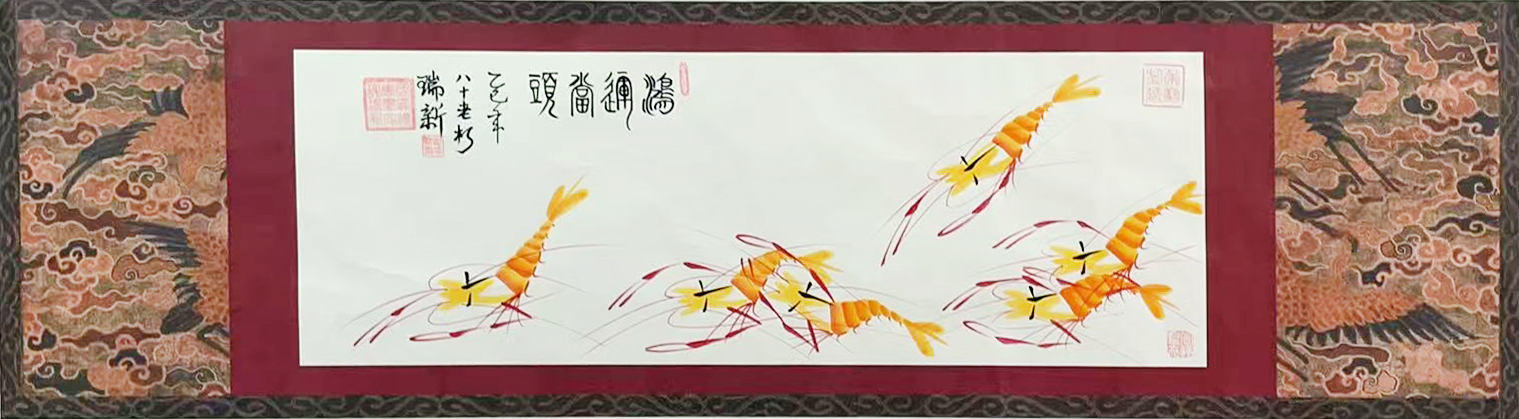 鴻運當頭
乙巳年
八十老朽
瑞新